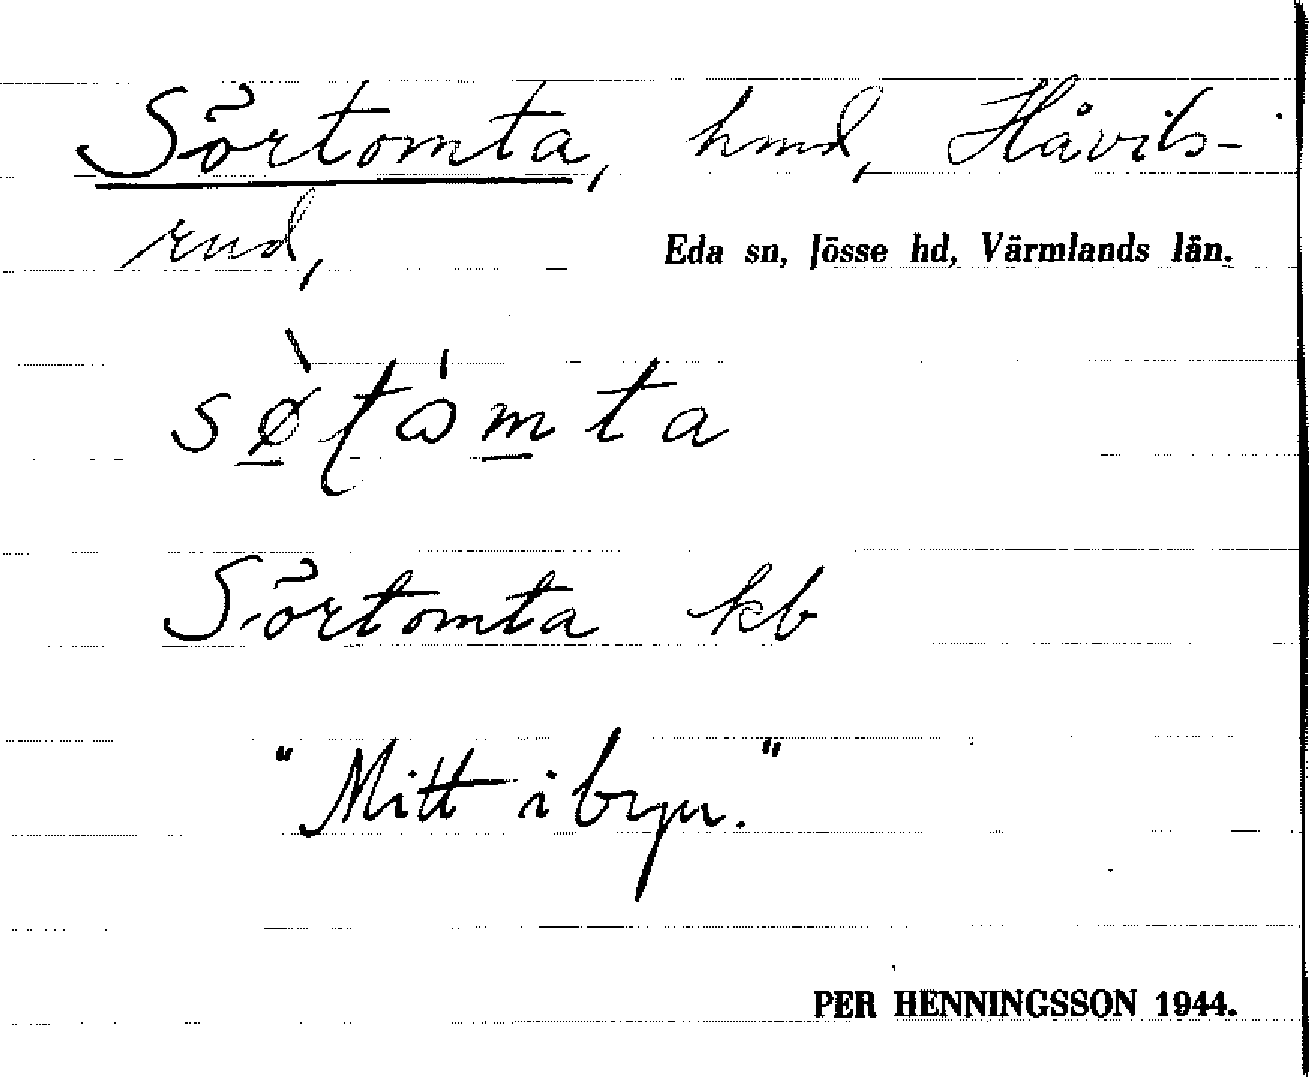 Sörtomta, hmd, Håvils-
rud,
Eda sn, Jösse hd, Värmlands län.
Sörtomta kb
"Mitt i byn."
PER HENNINGSSON 1944.